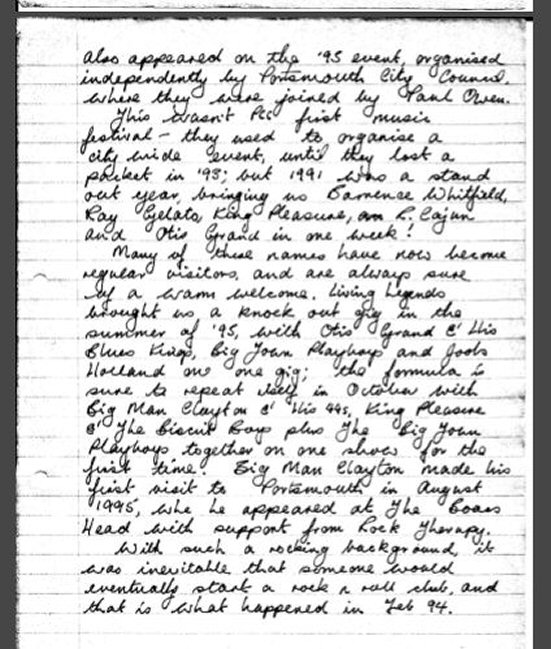 also appeared on the '95 event, organised
independently by Portsmouth City Council,
where they were joined by Paul Owen.
This wasn't PCC first music
festival - they used to organise a
city wide event, until they lost a
packet in '93; but 1991 was a stand
out year, bringing us Barrence Whitfield,
Ray Gelato, King Pleasure, R. Cajun
and Otis Grand in one week!
Many of these names have now become
regular visitors, and are always sure
of a warm welcome. Living Legends
brought us a knock out gig in the
summer of '95, with Otis Grand & His
Blues Kings, Big Town Playboys and Jools
Holland on one gig; the formula is
sure to repeat itself in October with
Big Man Clayton & His 44s, King Pleasure
& The Biscuit Boys plus The Big Town
Playboys together on one show for the
first time. Big Man Clayton made his
first visit to Portsmouth in August
1995, whe he appeared at The Boars
Head with support from Rock Therapy.
With such a rocking background, it
was inevitable that someone would
eventually start a rock n roll club, and
that is what happened in Feb 94.